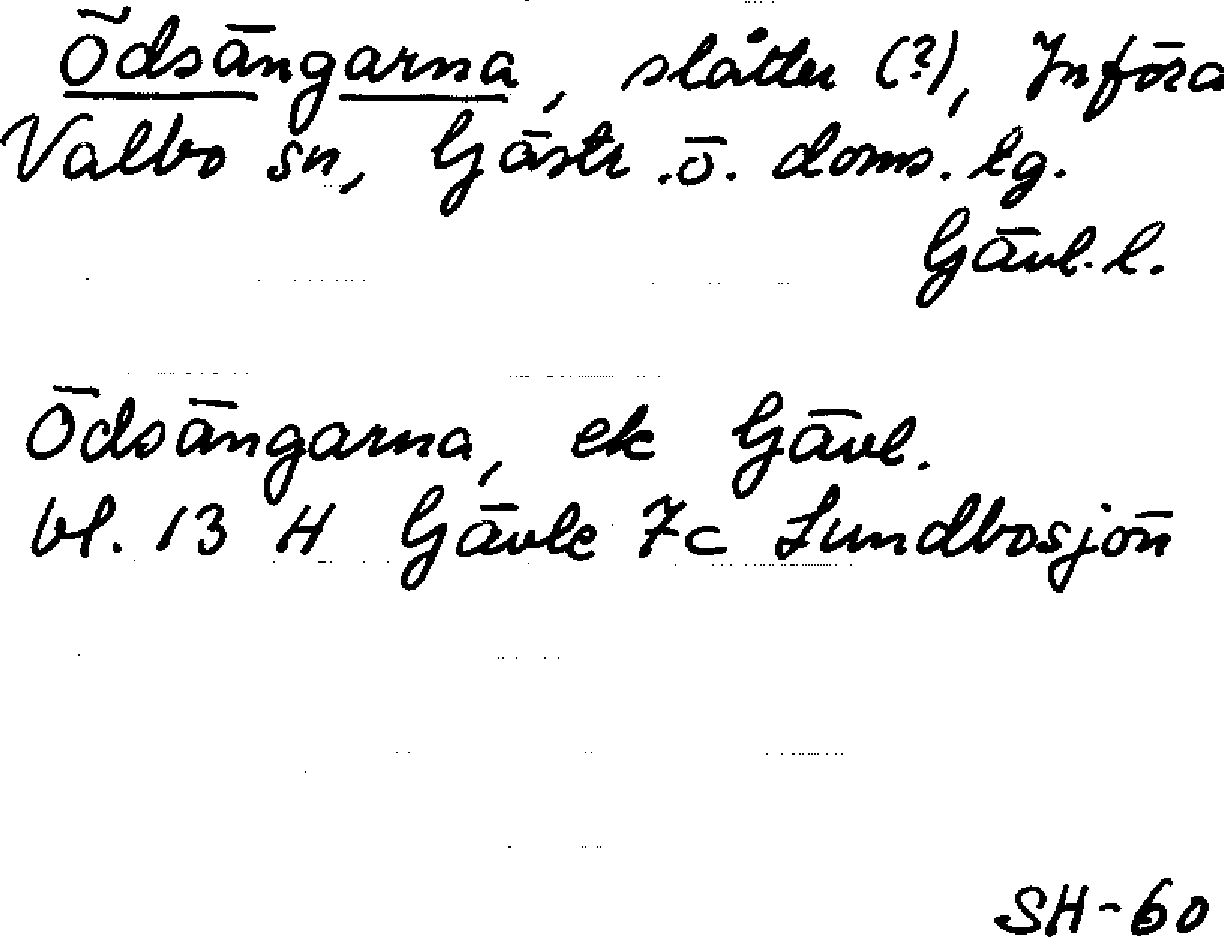 Ödsängarna, slåtter (?), Införa
Valbo sn, Gästr. ö. doms. lg.
Gävl. l.
Ödsängarna, ek Gävl.
bl. 13 H Gävle 7c Lundbosjön
SH-60